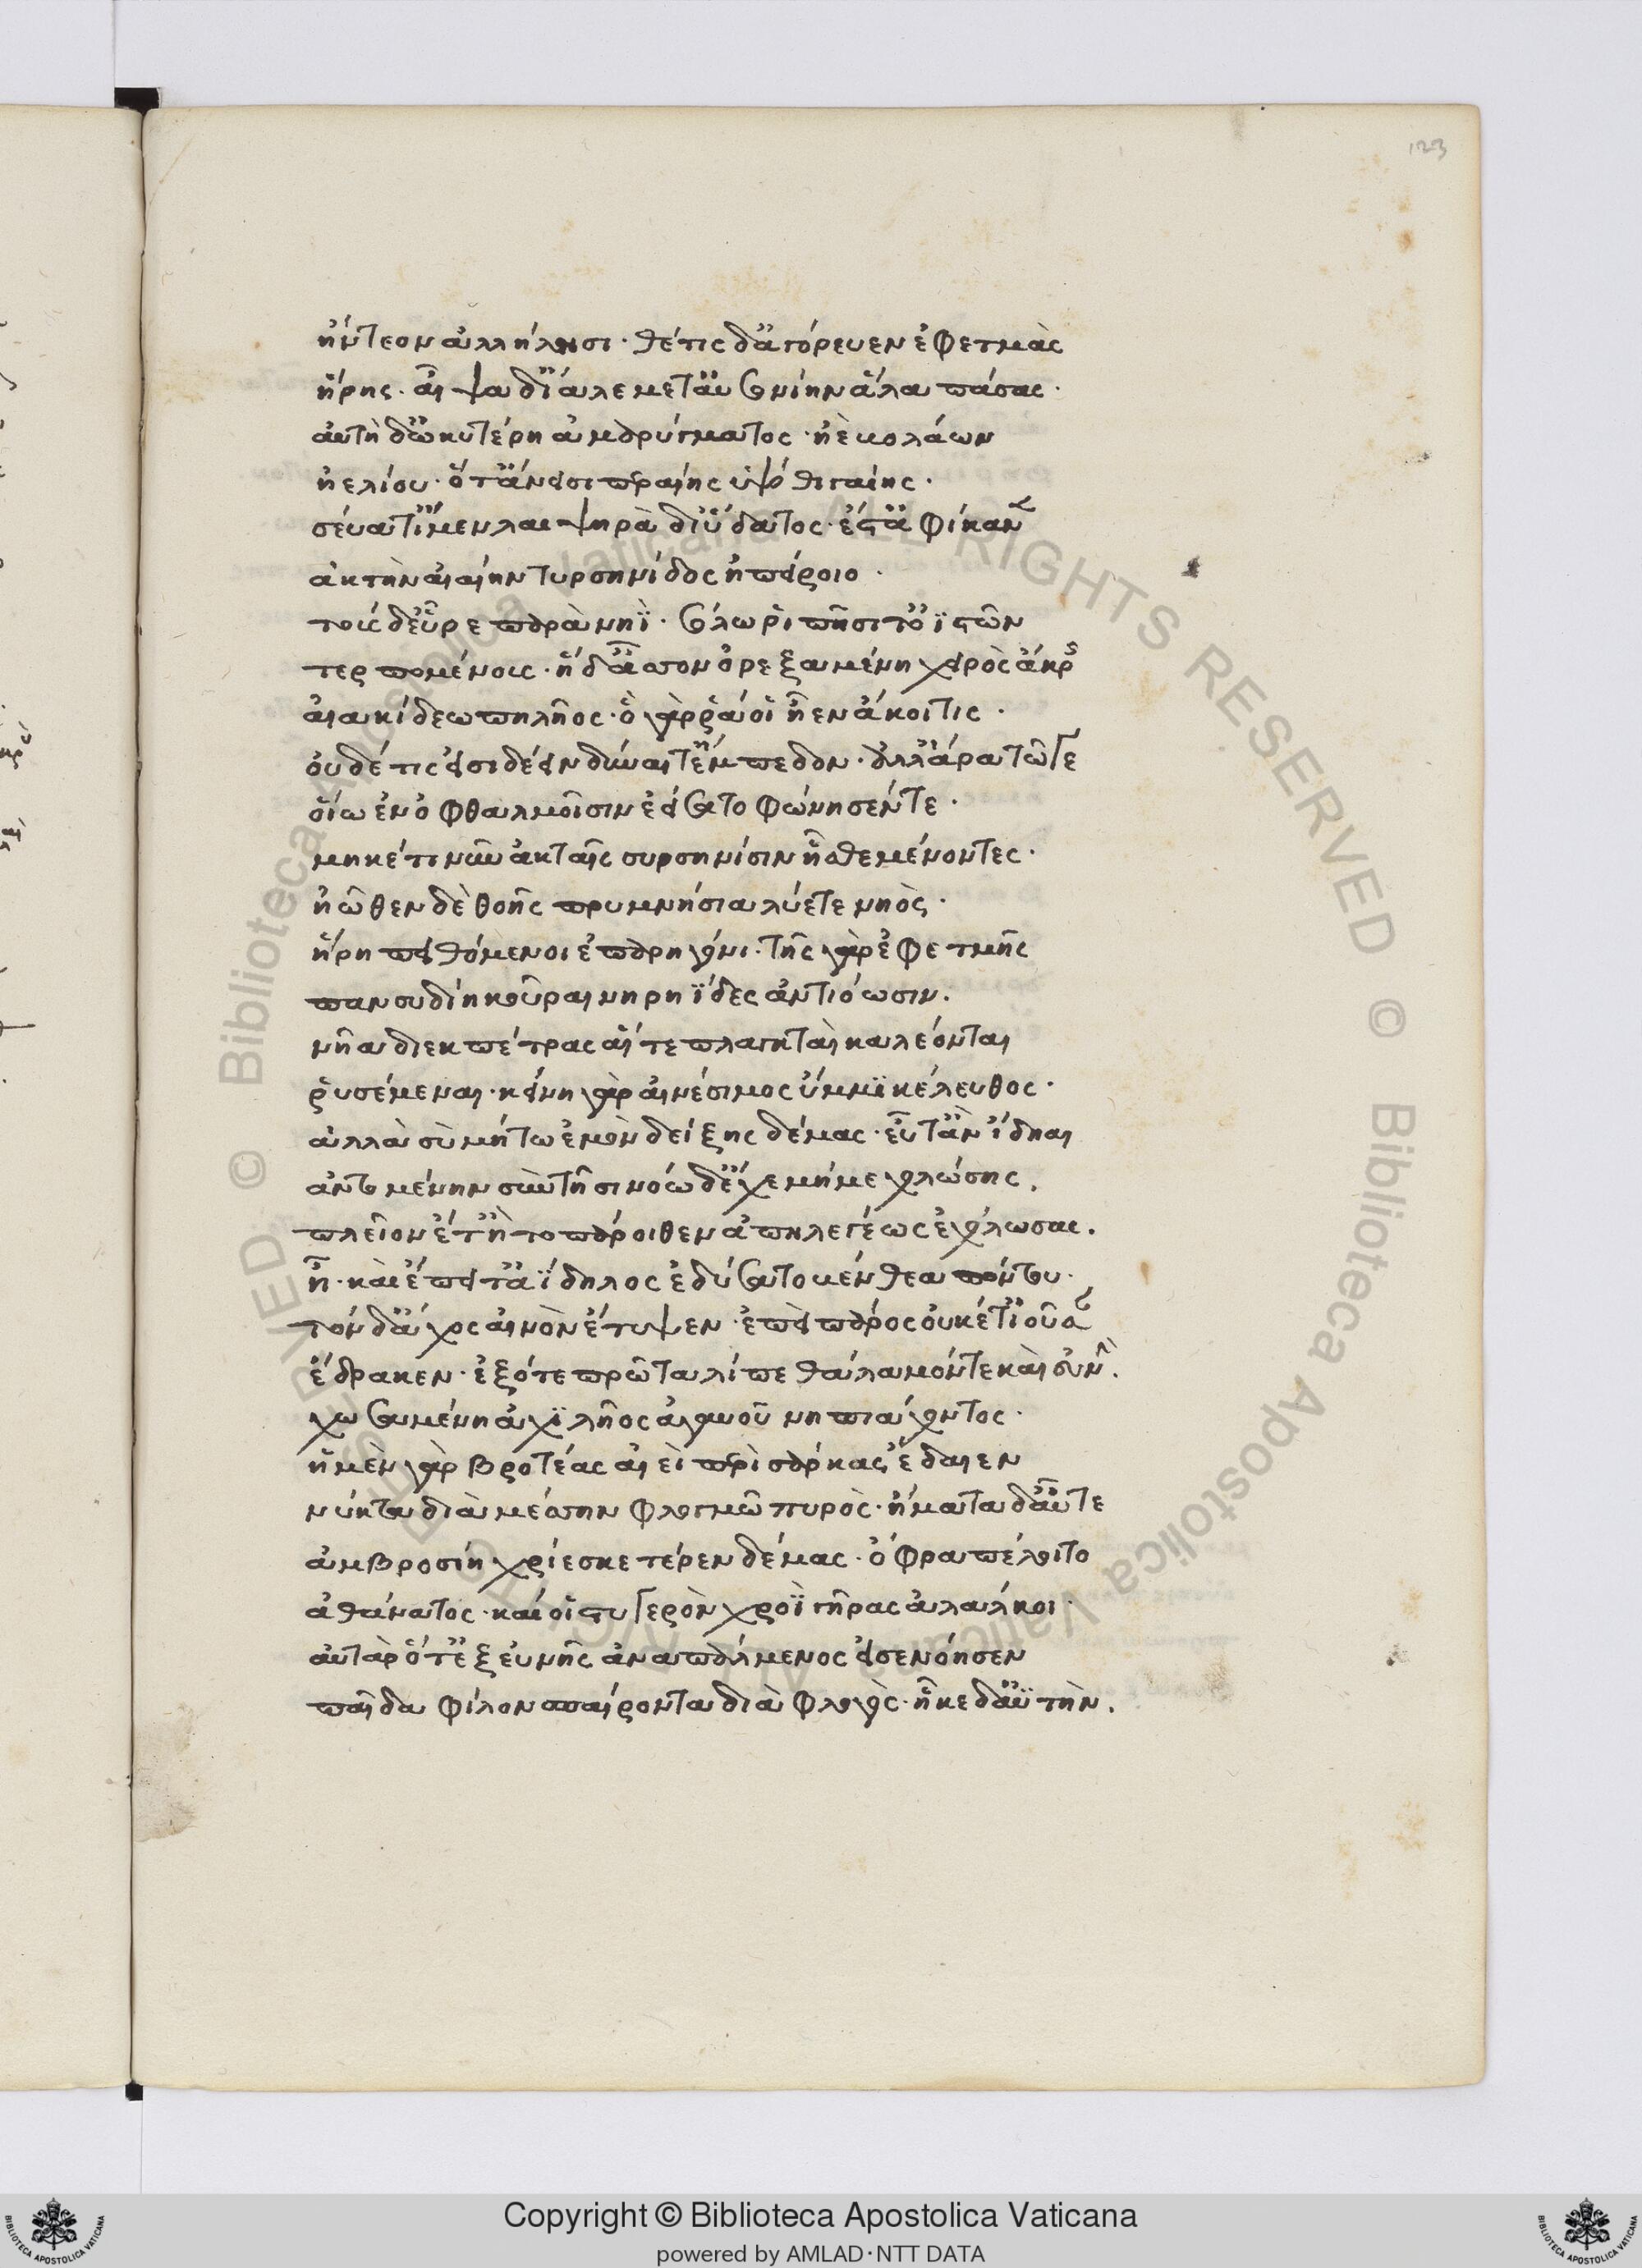 123
ἤντεον ἀλλήλησι· θέτις δ' ἀγόρευεν ἐφετμὰς
ἥρης· αἶψα δ' ἴαλε μετ' αὐσονίην ἅλα πάσας·
αὐτὴ δ' ὠκυτέρη ἀμαρύγματος· ἠὲ βολάων
ἠελίου· ὅτ' ἄνεισι περαίης ὑψόθι γαίης·
σεύατ' ἴμεν λαιψηρὰ δι' ὕδατος· ἔστ' ἀφίκανεν
ἀκτὴν αἰαίην τυρσηνίδος ἠπείροιο·
τοὺς δ' εὗρε παρὰ νηῒ· σόλω ῥιπῆσί τ' ὀϊστῶν
τερπομένους· ἡ δ' ἆσσον ὀρεξαμένη χειρὸς ἄκρης
αἰακίδεω πηλῆος· ὁ γάρ ῥά οἱ ἦεν ἀκοίτις·
οὐδέ τις εἰσιδέειν δύνατ' ἔμπεδον· ἀλλ' ἄρα τῶγε
οἴω ἐν ὀφθαλμοῖσιν ἐείσατο φώνησέν τε·
μηκέτι νῦν ἀκταῖς τυρσηνίσιν ἧσθε μένοντες·
ἠῶθεν δὲ θοῆς πρυμνήσια λύετε νηὸς·
ἥρη πειθόμενοι ἐπαρηγόνι· τῆς γὰρ ἐφετμῆς
πανσυδίη κοῦραι νηρηΐδες ἀντιόωσιν.
νῆα διεκ πέτρας αἵ τε πλαγκταὶ καλέονται
ῥυσέμεναι· κείνη γὰρ ἐναίσιμος ὔμμι κέλευθος·
ἀλλὰ σὺ μήτω ἐμὸν δείξης δέμας· εὖτ' ἂν ἴδηαι
ἀντομένην σὺν τῆσι νόω δ' ἔχε μή με χολώσης.
πλεῖον ἔτ' ἢ τὸ πάροιθεν ἀπηλεγέως ἐχόλωσας.
ἦ· καὶ ἔπειτ' ἀΐδηλος ἐδύσατο βένθεα πόντου·
τὸν δ' ἄχος αἰνὸν ἔτυψεν· ἐπεὶ πάρος οὐκέτ' ἰοῦσαν
ἔδρακεν· ἐξότε πρῶτα λίπε θάλαμόν τε καὶ εὐνήν.
χωσαμένη ἀχιλῆος ἀγαυοῦ νηπιάχοντος·
ἡ μὲν γὰρ βροτέας αἰεὶ περὶ σάρκας ἔδαιεν
νύκτα διὰ μέσσην φλογμῶ πυρὸς· ἤματα δ' αὖτε
ἀμβροσίη χρίεσκε τέρεν δέμας· ὄφρα πέλοιτο
ἀθάνατος· καί οἱ στυγερὸν χροῒ γῆρας ἀλάλκοι·
αὐτὰρ ὅτ' ἐξ εὐνῆς ἀναπάλμενος εἰσενόησεν
παῖδα φίλον σπαίροντα διὰ φλογὸς· ἧκε δ' ἀϋτὴν.
Copyright © Biblioteca Apostolica Vaticana
powered by AMLAD·NTT DATA